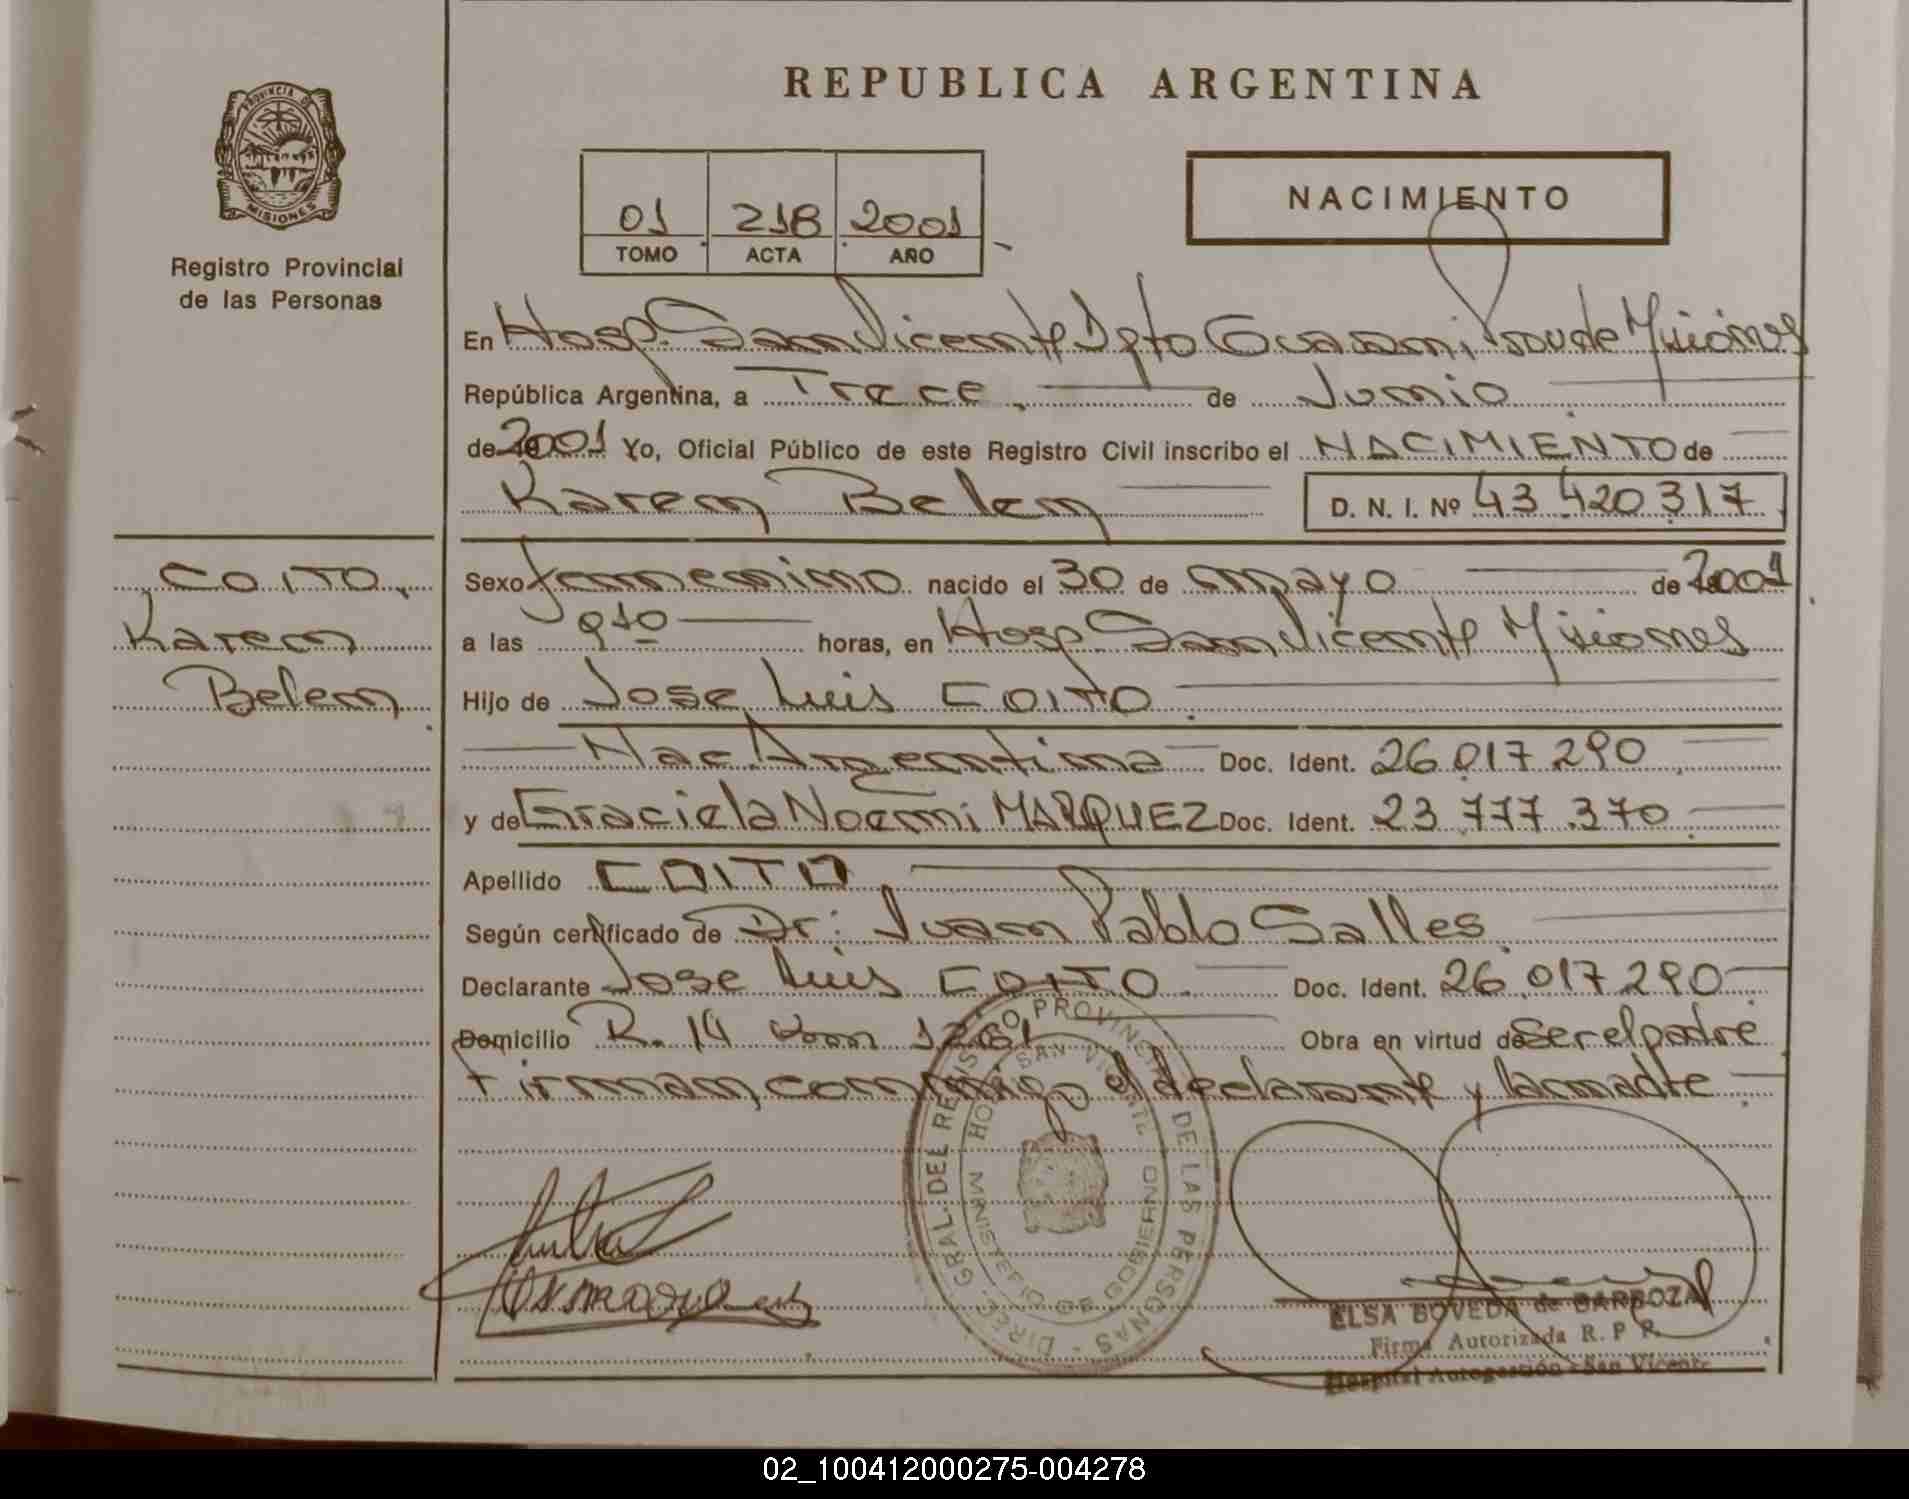 REPUBLICA ARGENTINA
PROVINCIA DE
MISIONES
Registro Provincial
de las Personas
01 218 2001
TOMO ACTA AÑO
NACIMIENTO
En Hosp. San Vicente Dpto Guarani Prov de Misiones
República Argentina, a Trece de Junio
de 2001 Yo, Oficial Público de este Registro Civil inscribo el NACIMIENTO de
Karem Belem D. N. I. Nº 43 420 317
COITO,
Karem
Belem
Sexo femenino nacido el 30 de mayo de 2001
a las 910 horas, en Hosp San Vicente Misiones
Hijo de Jose Luis COITO
Nac. Argentina Doc. Ident. 26.017 290
y de Graciela Noemi MARQUEZ Doc. Ident. 23 777.370
Apellido COITO
Según certificado de Dr: Juan Pablo Salles
Declarante Jose Luis COITO Doc. Ident. 26.017 290
Domicilio R. 14 Km 1261 Obra en virtud de ser el padre
Firman conmigo el declarante y la madre
DIREC. GRAL. DEL REGISTRO PROVINCIAL DE LAS PERSONAS
SAN VICENTE
MINISTERIO DE GOBIERNO
ELSA BOVEDA de BARBOZA
Firma Autorizada R. P. P.
Hospital Autogestión - San Vicente
02_100412000275-004278